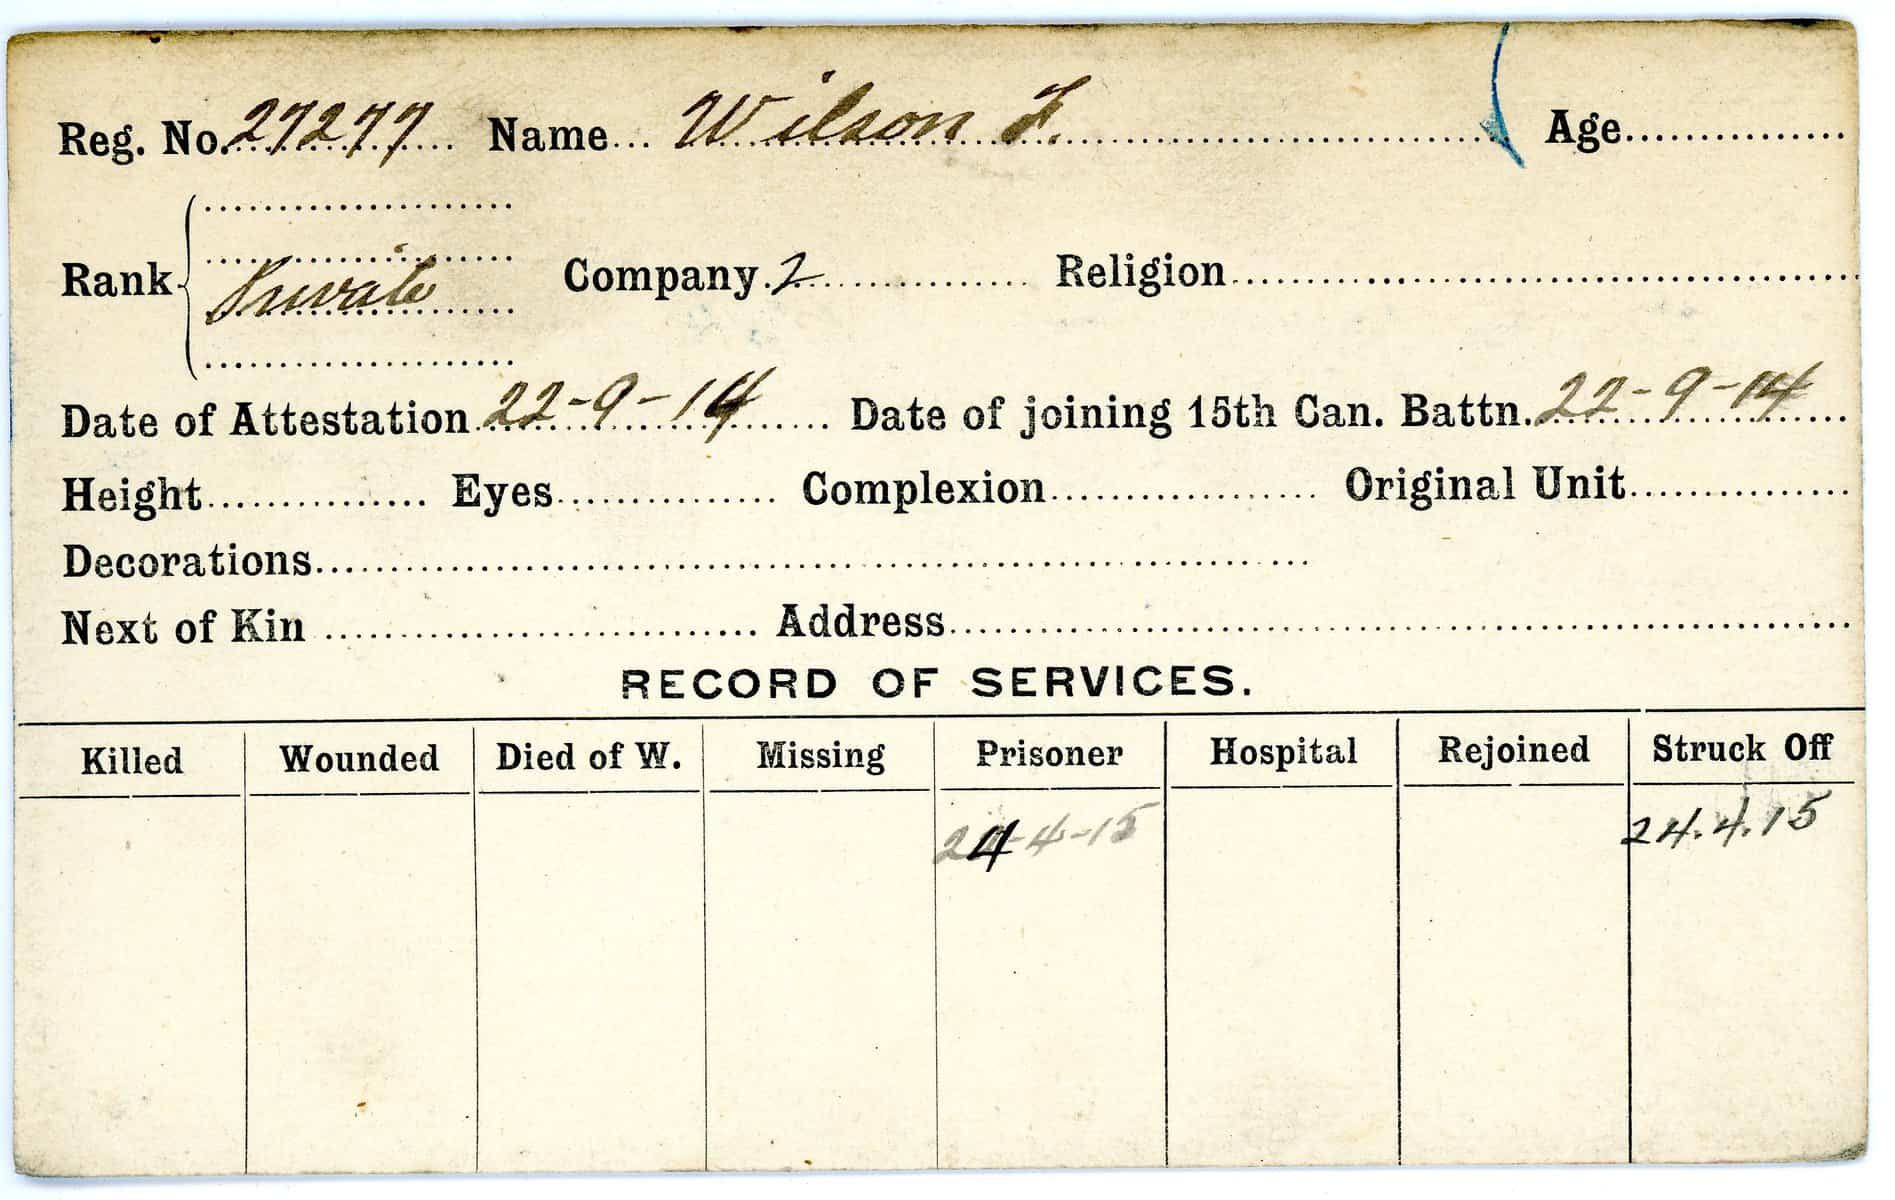 Reg. No. 27277 Name Wilson F. Age
Rank Private Company 2 Religion
Date of Attestation 22-9-14 Date of joining 15th Can. Battn. 22-9-14
Height Eyes Complexion Original Unit
Decorations
Next of Kin Address
RECORD OF SERVICES.
Killed Wounded Died of W. Missing Prisoner Hospital Rejoined Struck Off
24-4-15 24.4.15